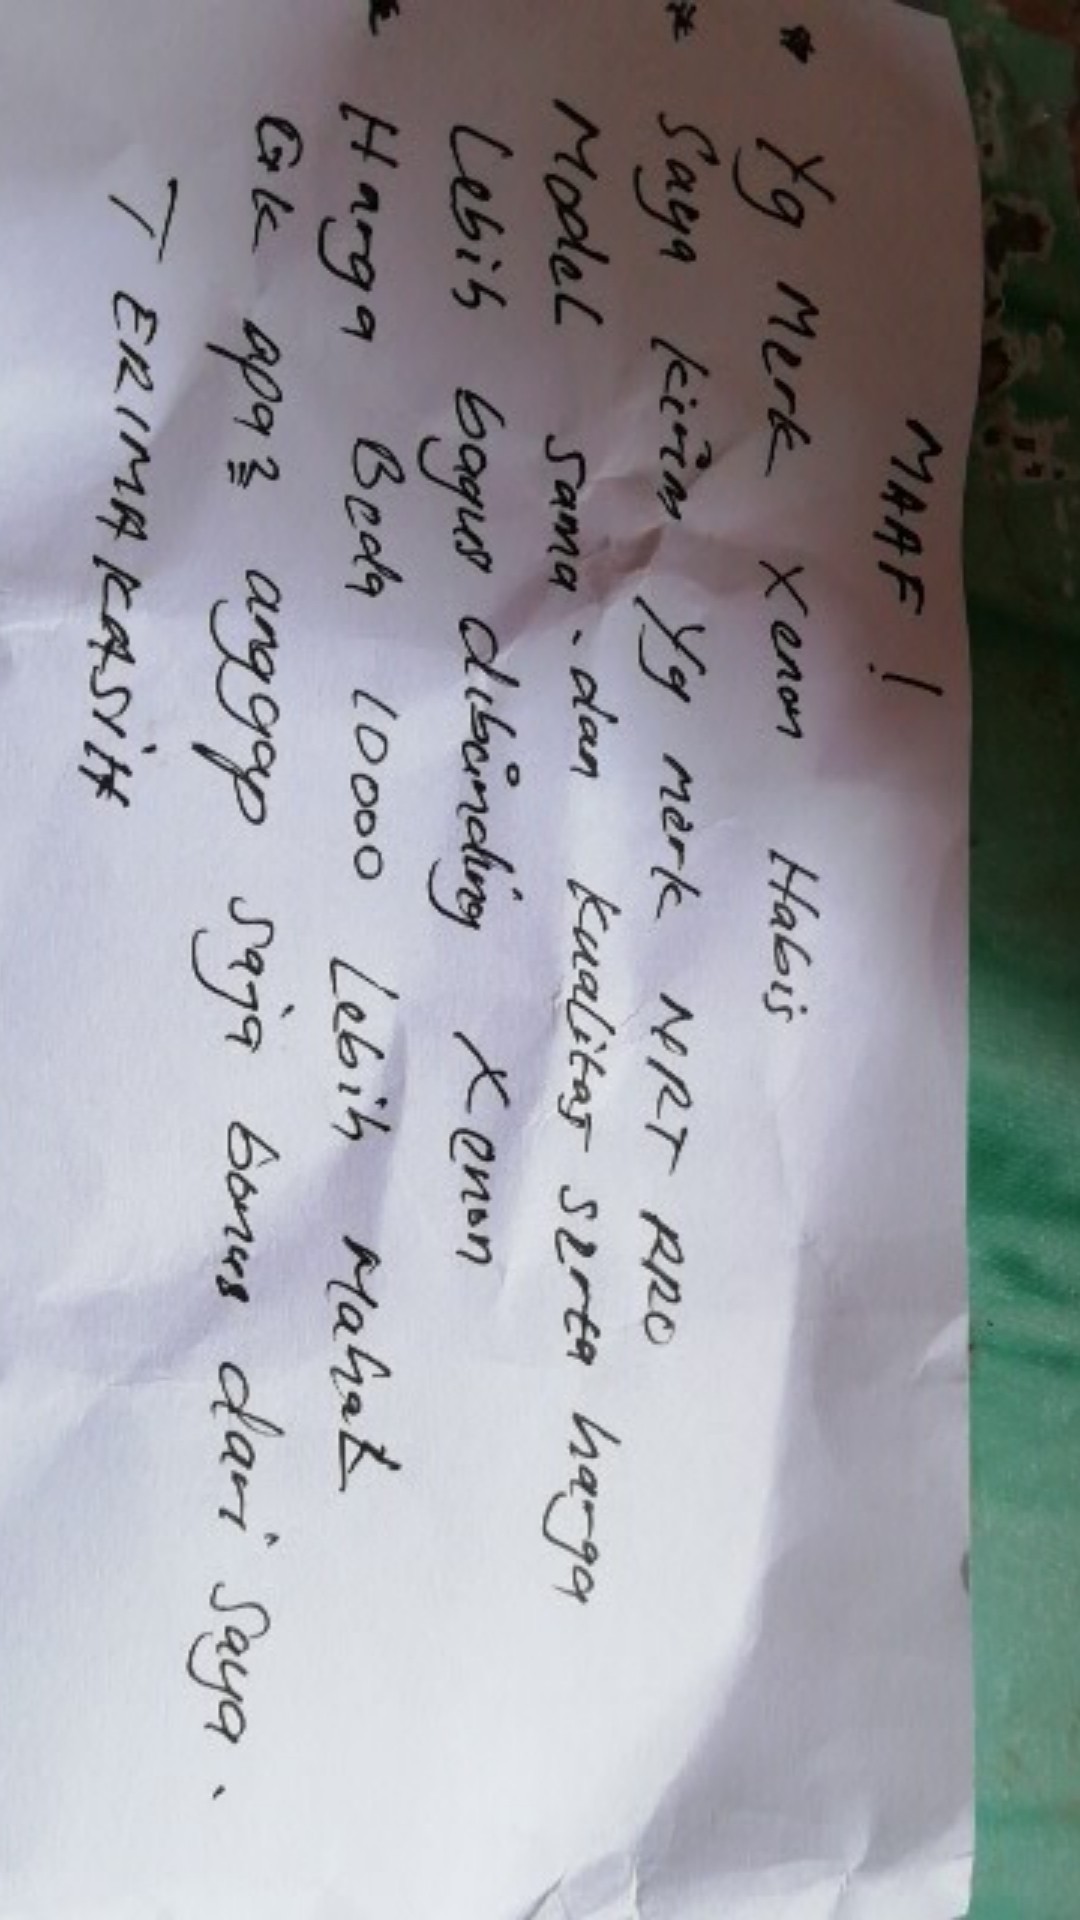 MAAF !
* Yg Merk Xenon Habis
* Saya kirim Yg merk NRT PRO
Model sama . dan kualitas serta harga
Lebih bagus dibanding Xenon
* Harga Beda 10000 Lebih Mahal
Gk apa2 anggap saja bonus dari saya .
TERIMAKASIH